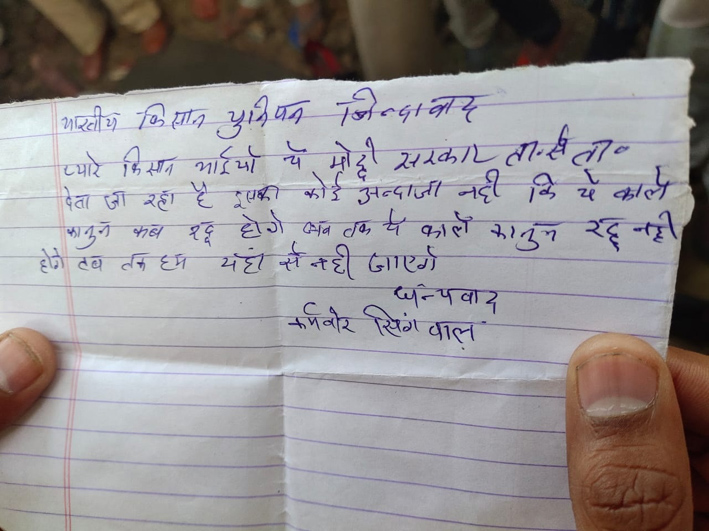 भारतीय किसान युनियन जिन्दावाद
प्यारे किसान भाईयो ये मोदी सरकार ता.से ता.
देता जा रहा है इसका कोई अन्दाजा नही कि ये काले
कानुन कब रद्द होगे जब तक ये काले कानुन रद्द नही
होगे तब तक हम यहां से नही जाएगे
धन्यवाद
कर्मवीर सिंग वालं